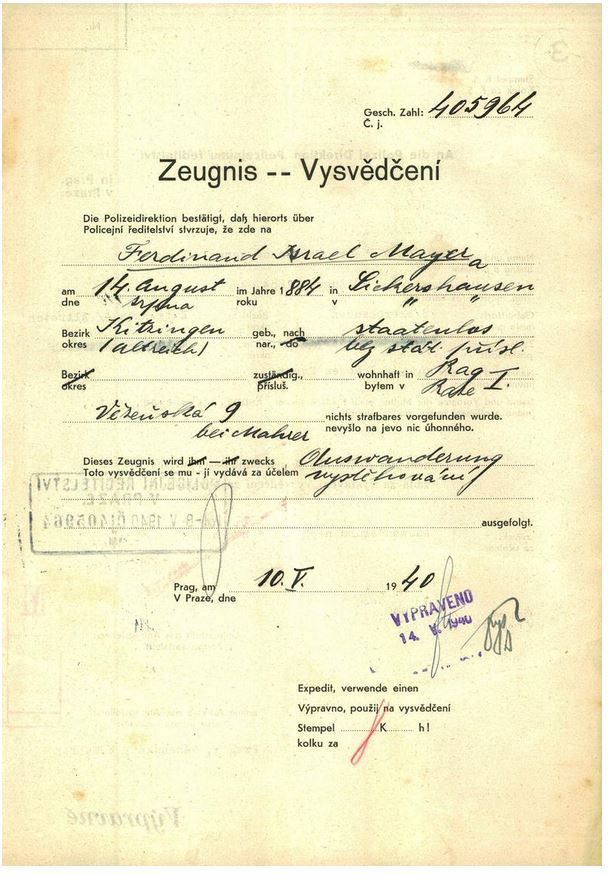 Gesch. Zahl: 405964
Č. j.
Zeugnis -- Vysvědčení
Die Polizeidirektion bestätigt, daß hierorts über
Policejní ředitelství stvrzuje, že zde na
Ferdinand Israel Mayer a
am 14. August im Jahre 1884 in Sickershausen
dne srpna roku v " "
Bezirk Kitzingen geb., nach staatenlos
okres (Altreich) nar., do bez stát. přísl.
Bezirk zuständig., wohnhaft in Prag I.
okres přísluš. bytem v Praze
Vězeňská 9 nichts strafbares vorgefunden wurde.
bei Mahrer nevyšlo na jevo nic úhonného.
Dieses Zeugnis wird ihm — ihr zwecks Auswanderung
Toto vysvědčení se mu - jí vydává za účelem vystěhování
POLICEJNÍ ŘEDITELSTVÍ
V PRAZE
-9 V 1940 Č 405964
ausgefolgt.
Prag, am 10. V. 1940
V Praze, dne
VYPRAVENO
14. V. 1940
Expedit, verwende einen
Výpravno, použij na vysvědčení
Stempel K h!
kolku za
Výpravně